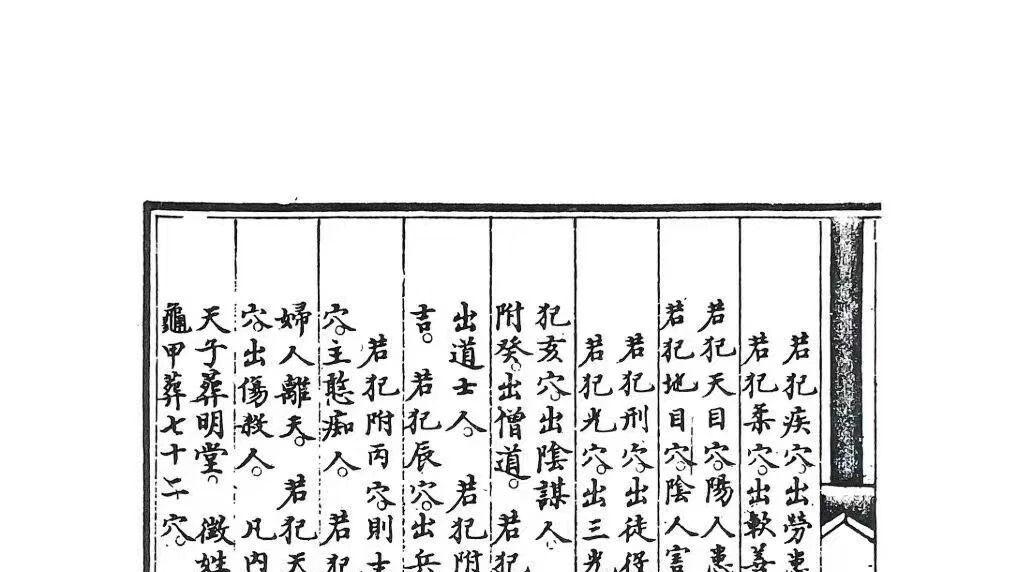 若犯疾穴。出勞患
若犯柔穴。出軟善
若犯天目穴。陽人患
若犯地目穴。陰人害
若犯刑穴。出徒
若犯光穴。出三光
犯亥穴。出陰謀人。
附癸。出僧道。若犯
出道士人。若犯附
吉。若犯辰穴。出兵
若犯附丙穴。則主
穴。主憨痴人。若犯
婦人離夫。若犯天
穴。出傷殺人。凡內
天子葬明堂。徵姓
龜甲葬七十二穴。